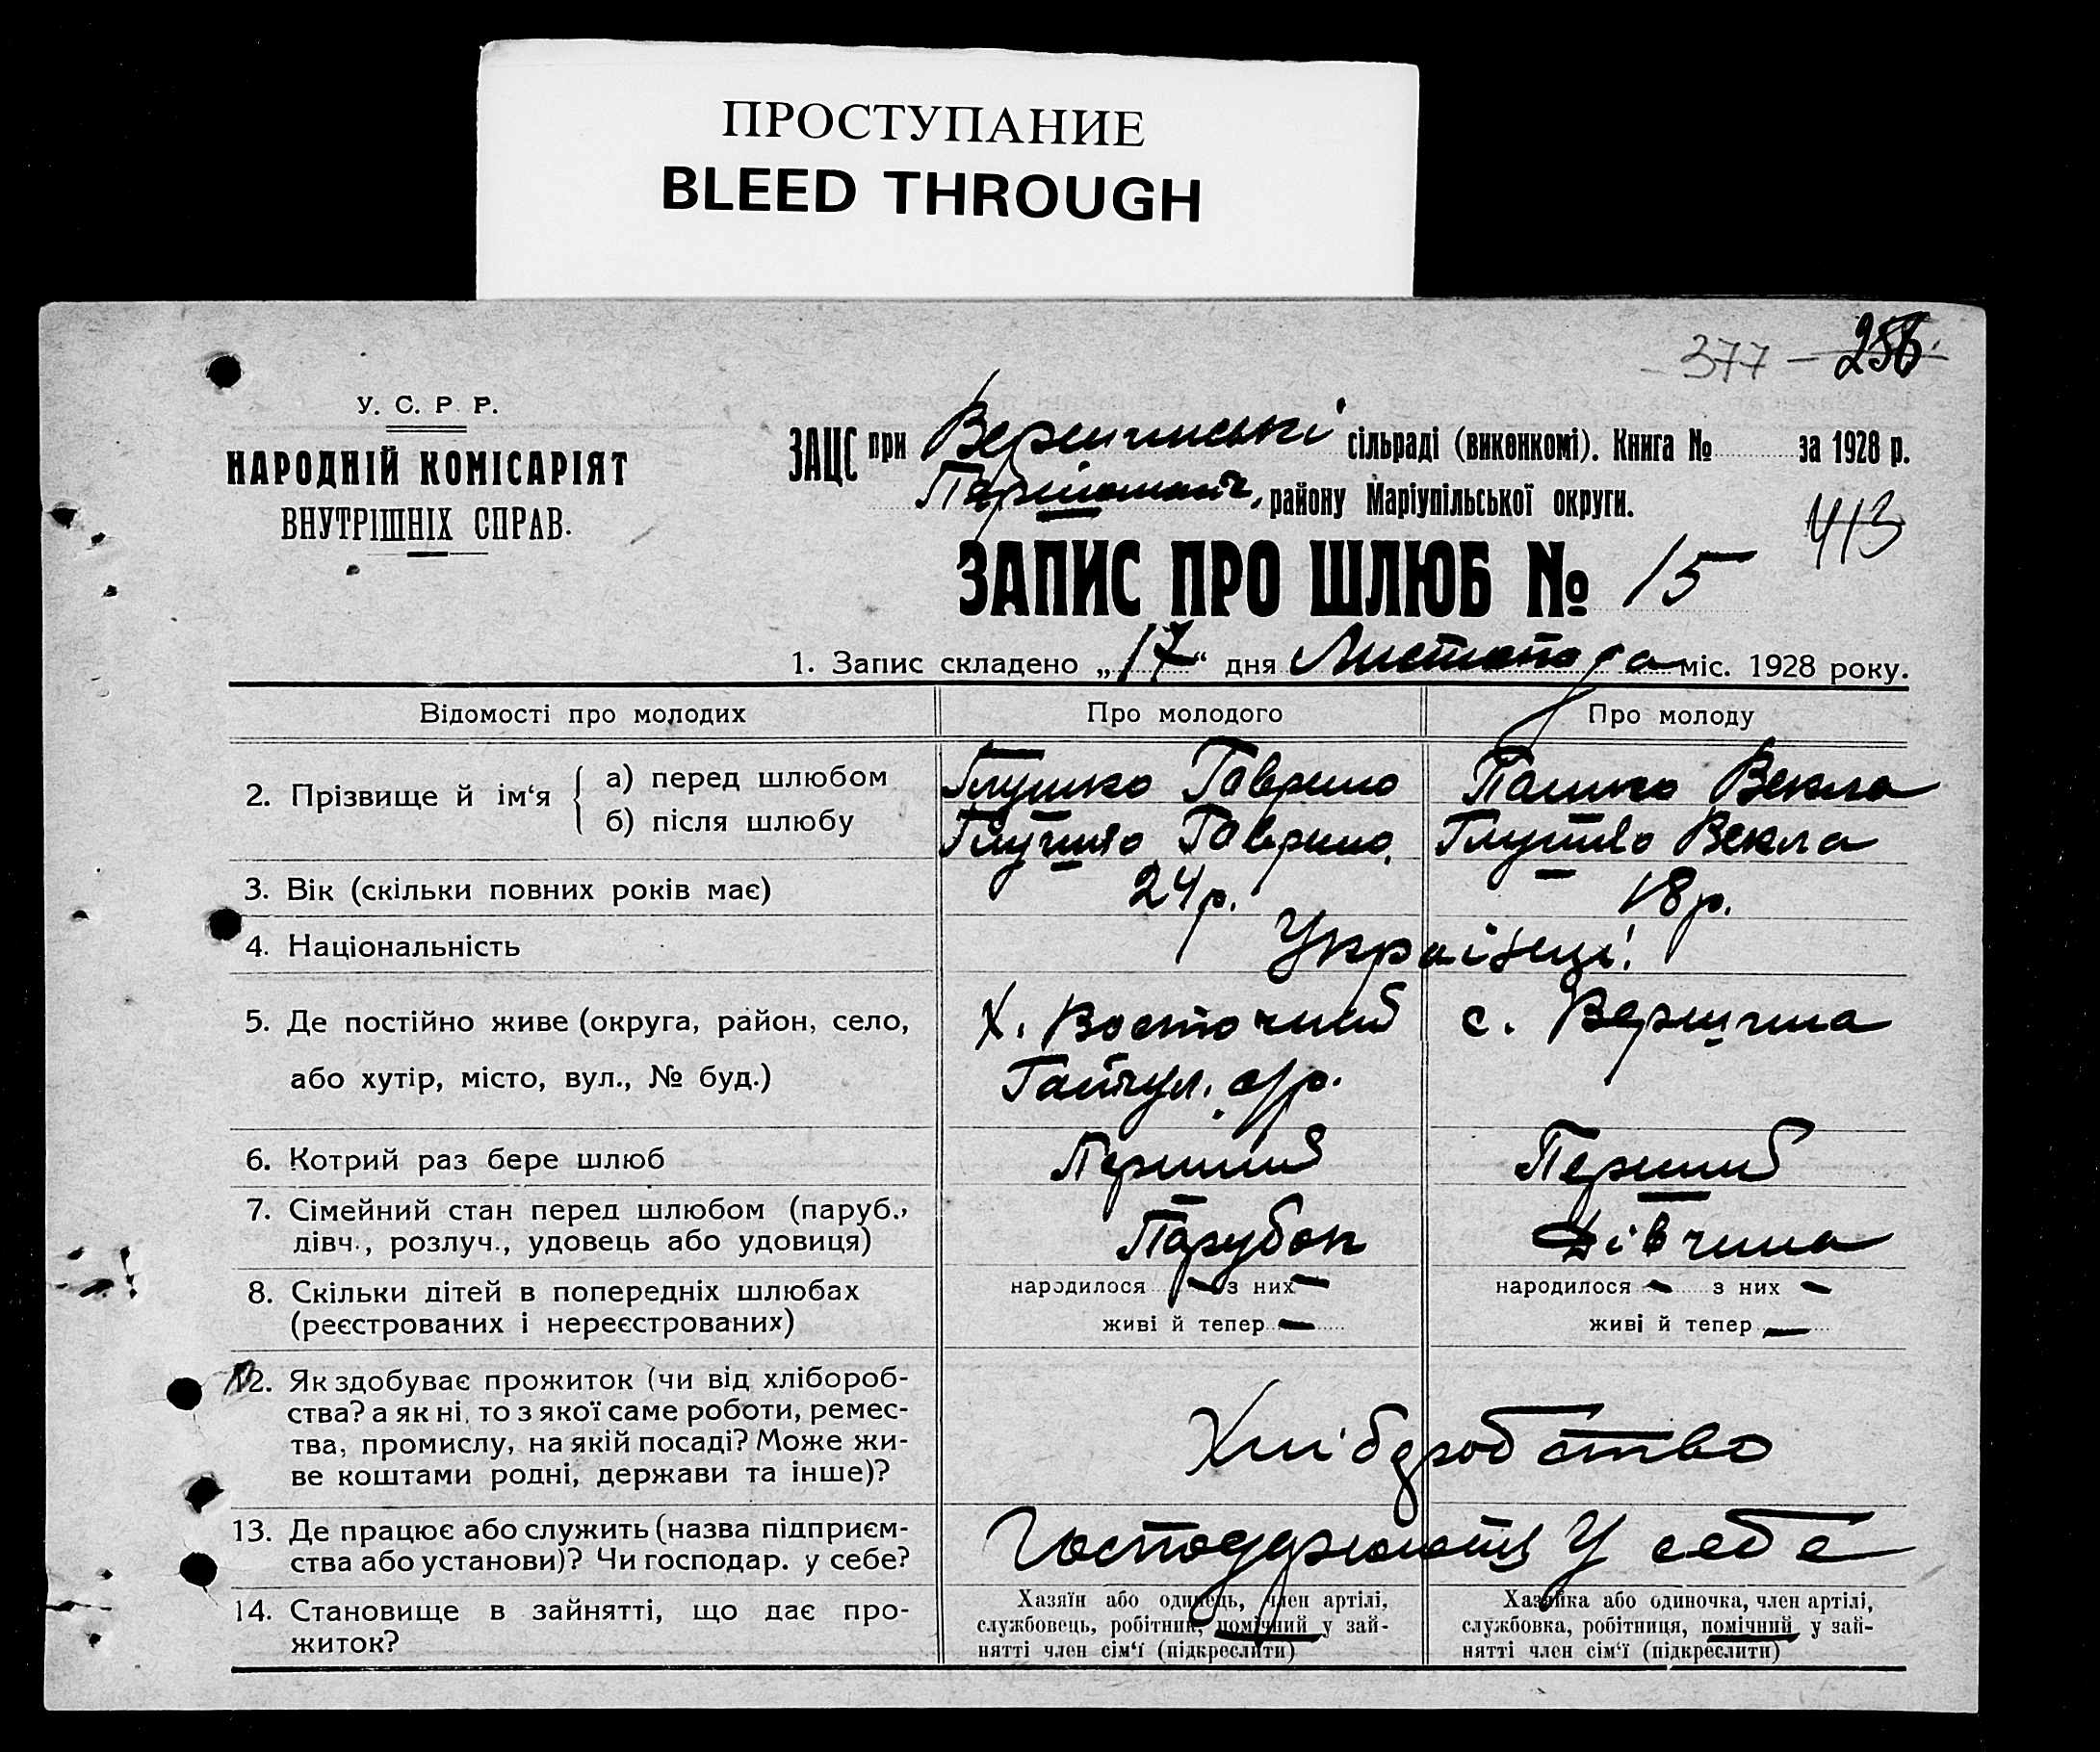 ПРОСТУПАНИЕ
BLEED THROUGH
377 256
У. С. Р. Р.
НАРОДНІЙ КОМІСАРІЯТ
ВНУТРІШНІХ СПРАВ.
ЗАЦС при Вершинські сільраді (виконкомі). Книга № за 1928 р.
району Маріупільської округи.
413
ЗАПИС ПРО ШЛЮБ № 15
1. Запис складено „17“ дня Листопада міс. 1928 року.
Відомості про молодих Про молодого Про молоду
2. Прізвище й ім‘я { а) перед шлюбом Глушко Гаврило Векла
б) після шлюбу Глушко Гаврило Глушко Векла
3. Вік (скільки повних років має) 24 р. 18 р.
4. Національність Українці
5. Де постійно живе (округа, район, село, х. Восточний с. Вершина
або хутір, місто, вул., № буд.) Гайчул. с/р.
6. Котрий раз бере шлюб Перший Перший
7. Сімейний стан перед шлюбом (паруб., Парубок Дівчина
дівч., розлуч., удовець або удовиця)
8. Скільки дітей в попередніх шлюбах народилося — з них — народилося — з них —
(реєстрованих і нереєстрованих) живі й тепер — живі й тепер —
12. Як здобуває прожиток (чи від хлібороб-
ства? а як ні, то з якої саме роботи, ремес- Хліборобство
тва, промислу, на якій посаді? Може жи-
ве коштами родні, держави та інше)?
13. Де працює або служить (назва підприєм- Господарюють у себе
ства або установи)? Чи господар. у себе?
14. Становище в зайнятті, що дає про-
житок?
Хазяїн або одинець, член артілі,
службовець, робітник, помічний у зай-
нятті член сім‘ї (підкреслити)
Хазяйка або одиночка, член артілі,
службовка, робітниця, помічний у зай-
нятті член сім‘ї (підкреслити)